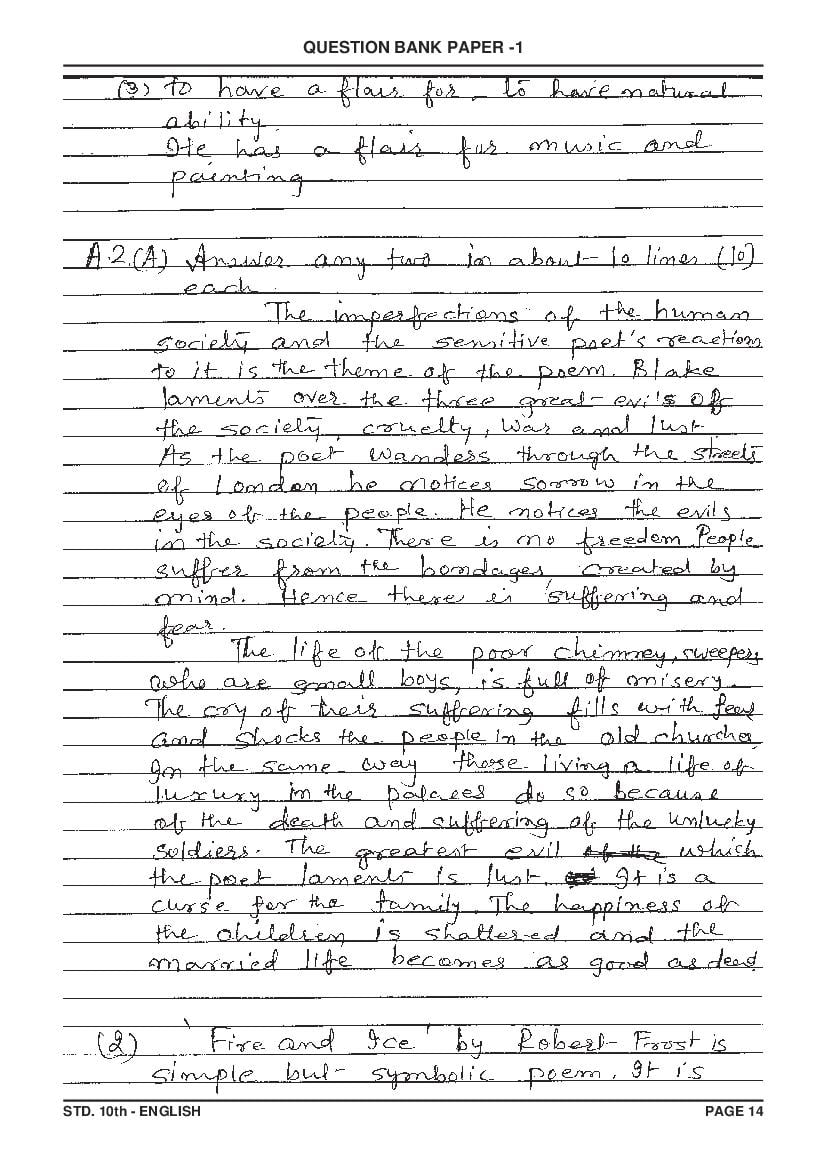 QUESTION BANK PAPER -1
(3) to have a flair for - to have natural
ability.
He has a flair for music and
painting
A.2.(A) Answer any two in about 10 lines (10)
each
The imperfections of the human
society and the sensitive poet's reactions
to it is the theme of the poem. Blake
laments over the three great evils of
the society, cruelty, war and lust.
As the poet wanders through the streets
of London he notices sorrow in the
eyes of the people. He notices the evils
in the society. There is no freedom People
suffer from the bondages, created by
mind. Hence there is suffering and
fear.
The life of the poor chimney, sweepers
who are small boys, is full of misery.
The cry of their suffering fills with fear
and shocks the people in the old churche
In the same way those living a life of
luxury in the palaces do so because
of the death and suffering of the unlucky
soldiers. The greatest evil which
the poet laments is lust. It is a
curse for the family. The happiness of
the children is shattered and the
married life becomes as good as dead
(2) 'Fire and Ice' by Robert Frost is
simple but symbolic poem. It is
STD. 10th - ENGLISH
PAGE 14